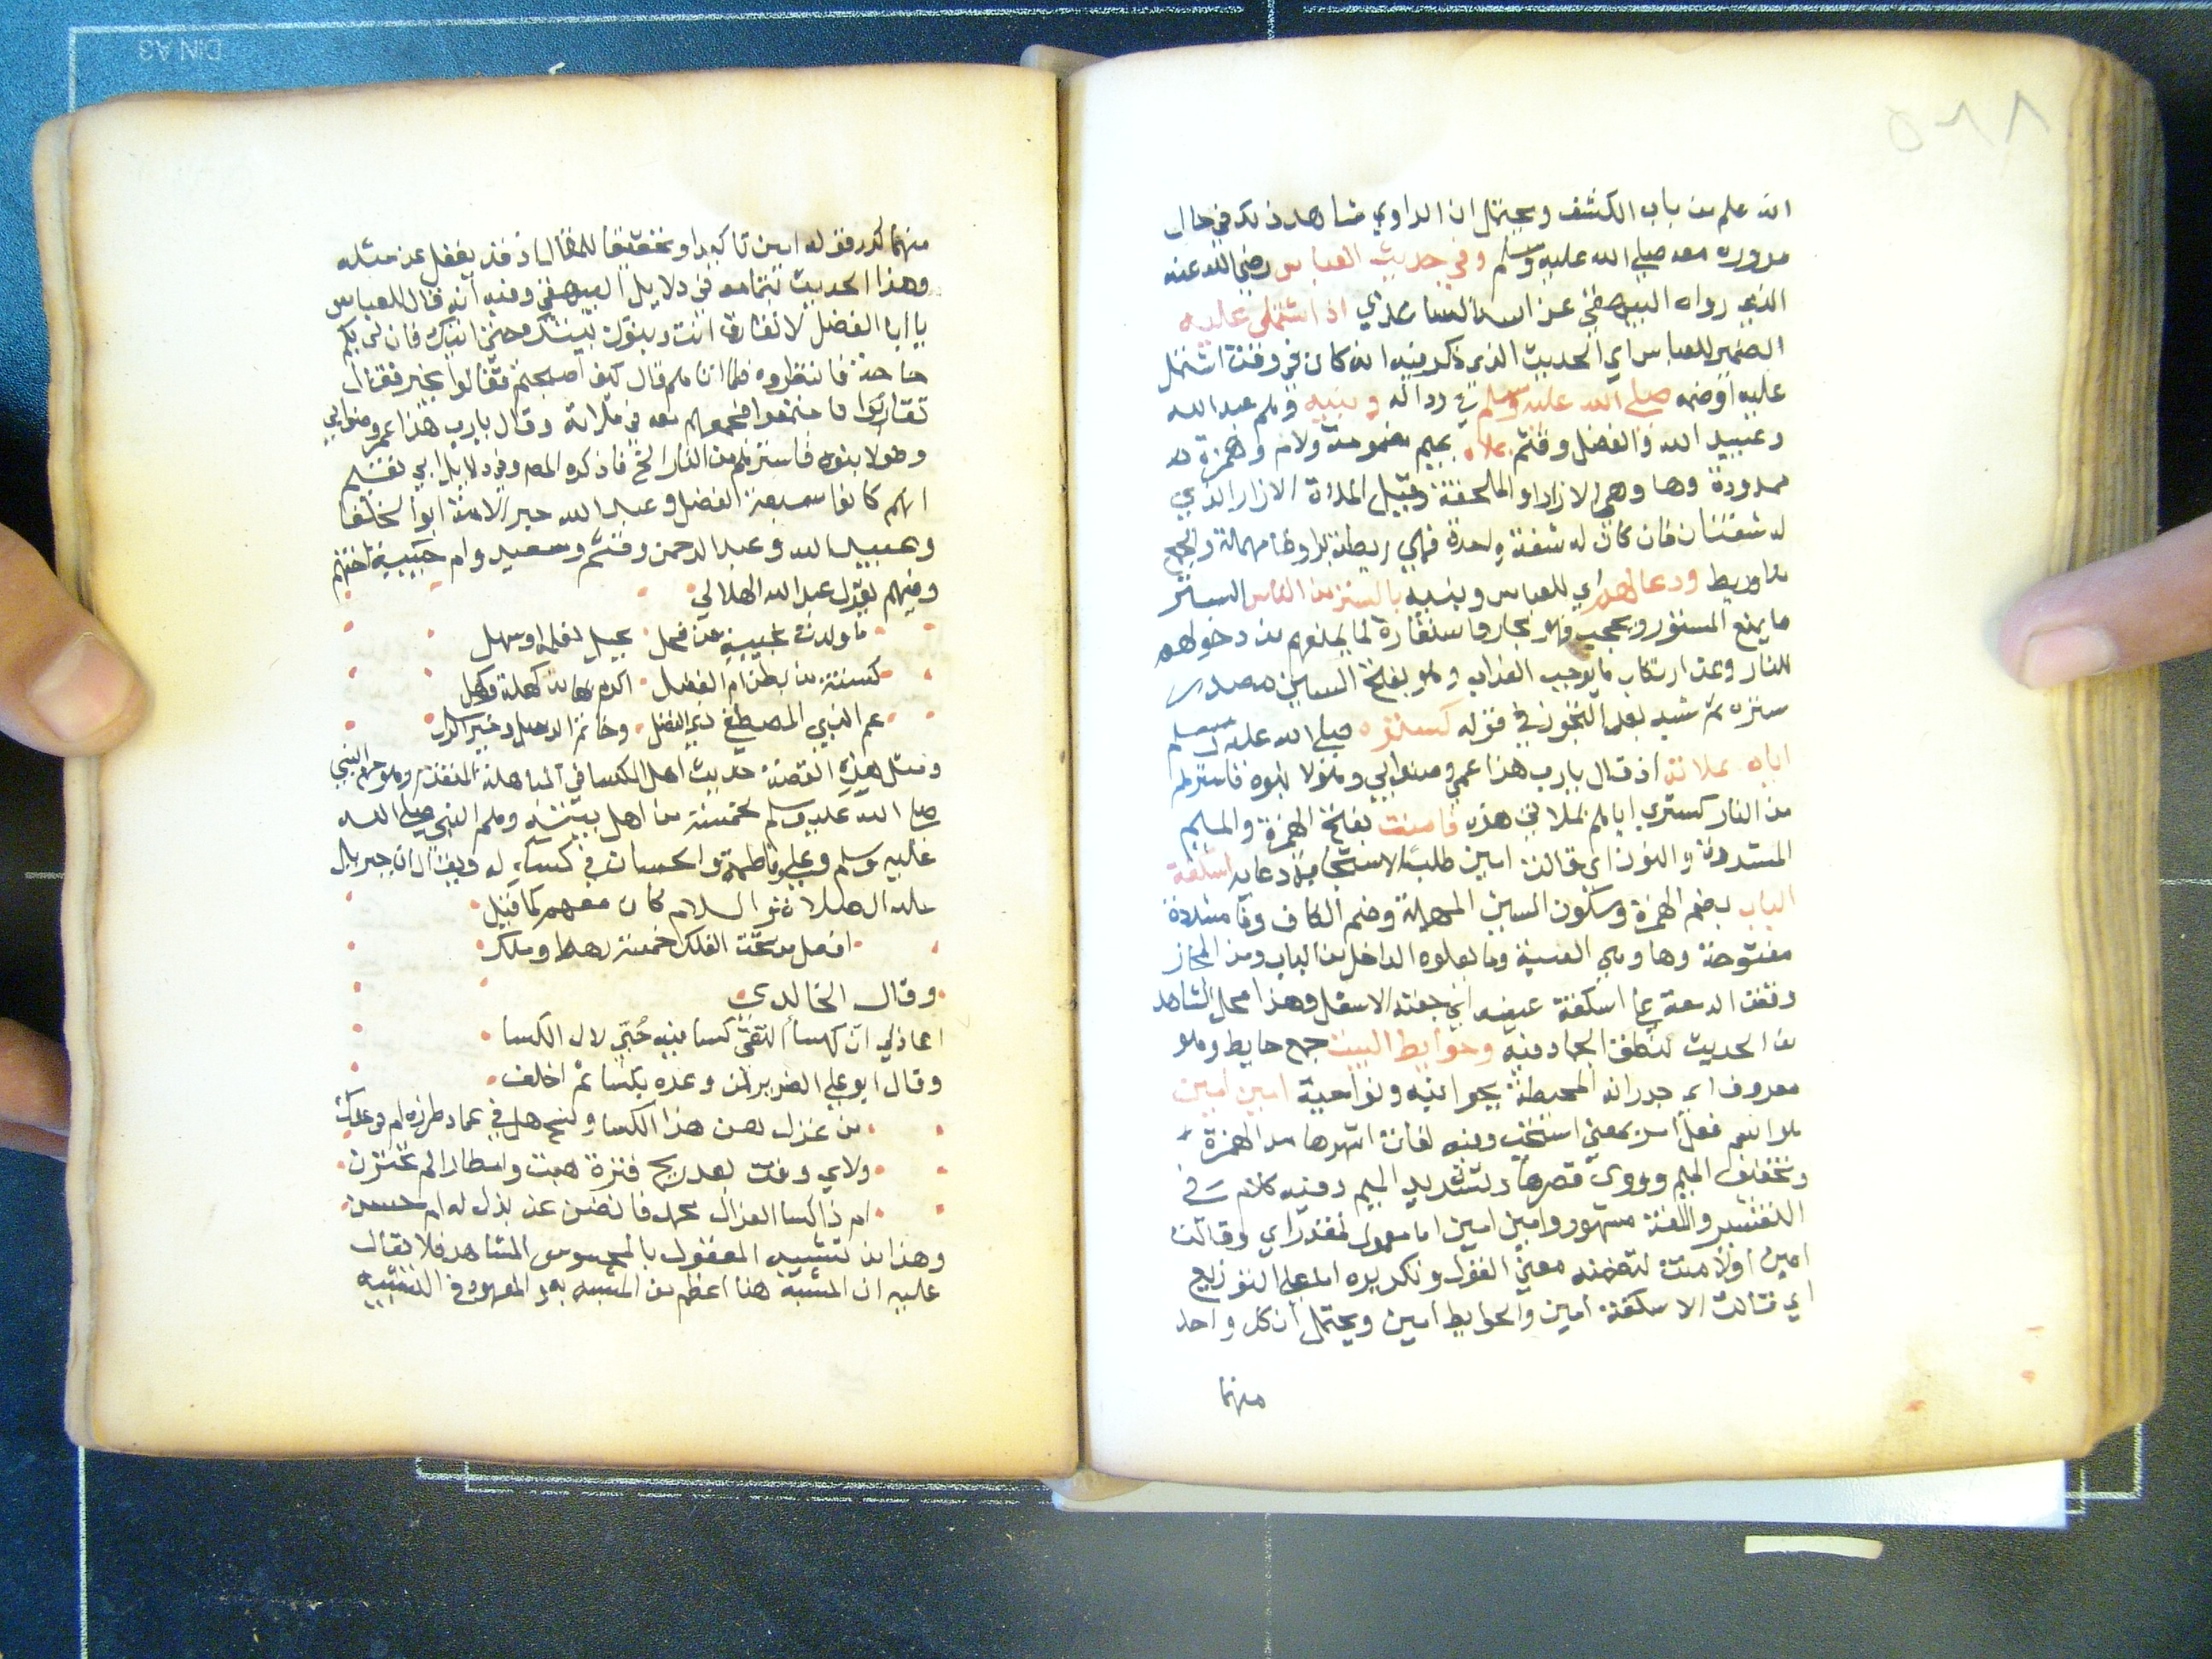 ٥٦٨
انه علم من باب الكشف ويحتمل ان الراوي شاهد ذلك في حال
مروره معه صلى الله عليه وسلم وفي حديث العباس رضي الله عنه
الذي رواه البيهقي عن اسد الساعدي اذ اشتمل عليه
الضمير للعباس اي الحديث الذي ذكر فيه انه كان في وقت اشتمل
عليه اوضمه صلى الله عليه وسلم في رداله وبنيه وهم عبد الله
وعبيد الله والفضل وقثم بملاءة بميم مضمومة ولام وهمزة
ممدودة وها وهي الازار او الملحفة وقيل الملاة الازار الذي
له شقتان فان كان له شقة واحدة فهي ريطة برا وطا مهملة والجمع
ريط ودعا لهم اي للعباس وبنيه بالستر من النار الستر
ما يمنع المستور ويحجبه فهو مجاز واستعارة لما يمنعهم من دخولهم
للنار وعن ارتكاب ما يوجب العذاب وهو بفتح السين مصدر
ستره ثم شبه بعد التجوز في قوله كستره صلى الله عليه وسلم
اياه بملاته اذ قال يارب هذا عمي وصنو ابي وهولا بنوه فاسترهم
من النار كستري اياهم بملاتي هذه فامنت بفتح الهمزة والميم
المشددة والنون اي قالت امين طلبا لاستجابة دعايه اسكفة
الباب بضم الهمزة وسكون السين المهملة وضم الكاف وفا مشددة
مفتوحة وها وهي العتبة وما يعلوه الداخل من الباب ومن المجاز
وقفت الدمعة على اسكفة عينه اي جفنه الاسفل وهذا محل الشاهد
من الحديث لنطق الجماد فيه وحوايط البيت جمع حايط وهو
معروف اي جدرانه المحيطة بجوانبه ونواحيه امين امين
هو اسم فعل امر بمعنى استجب وفيه لغات اشهرها مد الهمزة
وتخفيف الميم وروى قصرها وتشديد الميم وفيه كلام في
التفسير واللغة مشهور وامين امين اما معمول لمقدر اي وقالت
امين اولامنت لتضمنه معنى القول وتكريره اما على التوزيع
اي قالت الاسكفة امين والحوايط امين ويحتمل ان كل واحد
منهما
منهما كرر قوله امين تاكيدا وتحقيقا للمقال اذ قد يغفل عن مثله
وهذا الحديث بتمامه في دلايل البيهقي وفيه انه قال للعباس
يا ابا الفضل لا تفارق انت وبنوك بيتك حتى اتيك فان لي بكم
حاجة فانتظروه فلما اتاهم قال كيف اصبحتم فقالوا بخير فقال
تقاربوا فاجتمعوا فضمهم معه في ملاته وقال يارب هذا عمي وصنو ابي
وهولا بنوه فاسترهم من النار الخ فاذكره المص وفي دلايل ابي نعيم
انهم كانوا سبعة الفضل وعبد الله حبر الامة ابو الخلفا
وعبيد الله وعبد الرحمن وقثم وسعيد وام حبيبة اختهم
وفيهم يقول عبد الله الهلالي
ما ولدت نجيبة من فحل بجبل نعلمه اوسهل
كستة من بطن ام الفضل اكرم بها من كهلة وكهل
عم النبي المصطفى ذي الفضل وخاتم الرسل وخير الرسل
ومثل هذه القصة حديث اهل الكسا في المباهلة المتقدم وهو جمع النبي
صلى الله عليه وسلم لخمسة من اهل بيته وهم النبي صلى الله
عليه وسلم وعلي وفاطمة والحسنان في كساء له ويقال ان جبريل
عليه الصلاة والسلام كان معهم كما قيل
افضل من تحت الفلك خمسة رهط وملك
وقال الخالدي
اعاذلي ان كساء التقى كسانيه حبي لال الكسا
وقال ابو علي الضرير لمن وعده بكسا ثم اخلف
من غزل من هذا الكسا ونسج هل في عماد طرزه ام في علك
ولاي وقت بعد ريح قرة هبت وامطار الم تخزن
ام ذا كسا العزال محمد فانضن عن بذل له ام حسن
وهذا من تشبيه المعقول بالمحسوس المشاهد فلا يقال
عليه ان المشبه هنا اعظم من المشبه به والمعهود في التشبيه